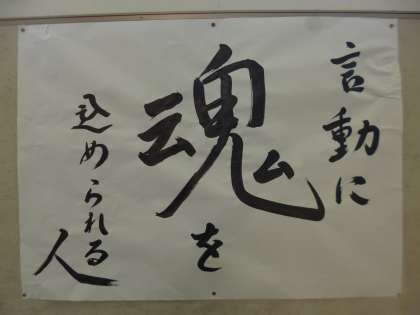 言動に
魂を
込められる
人